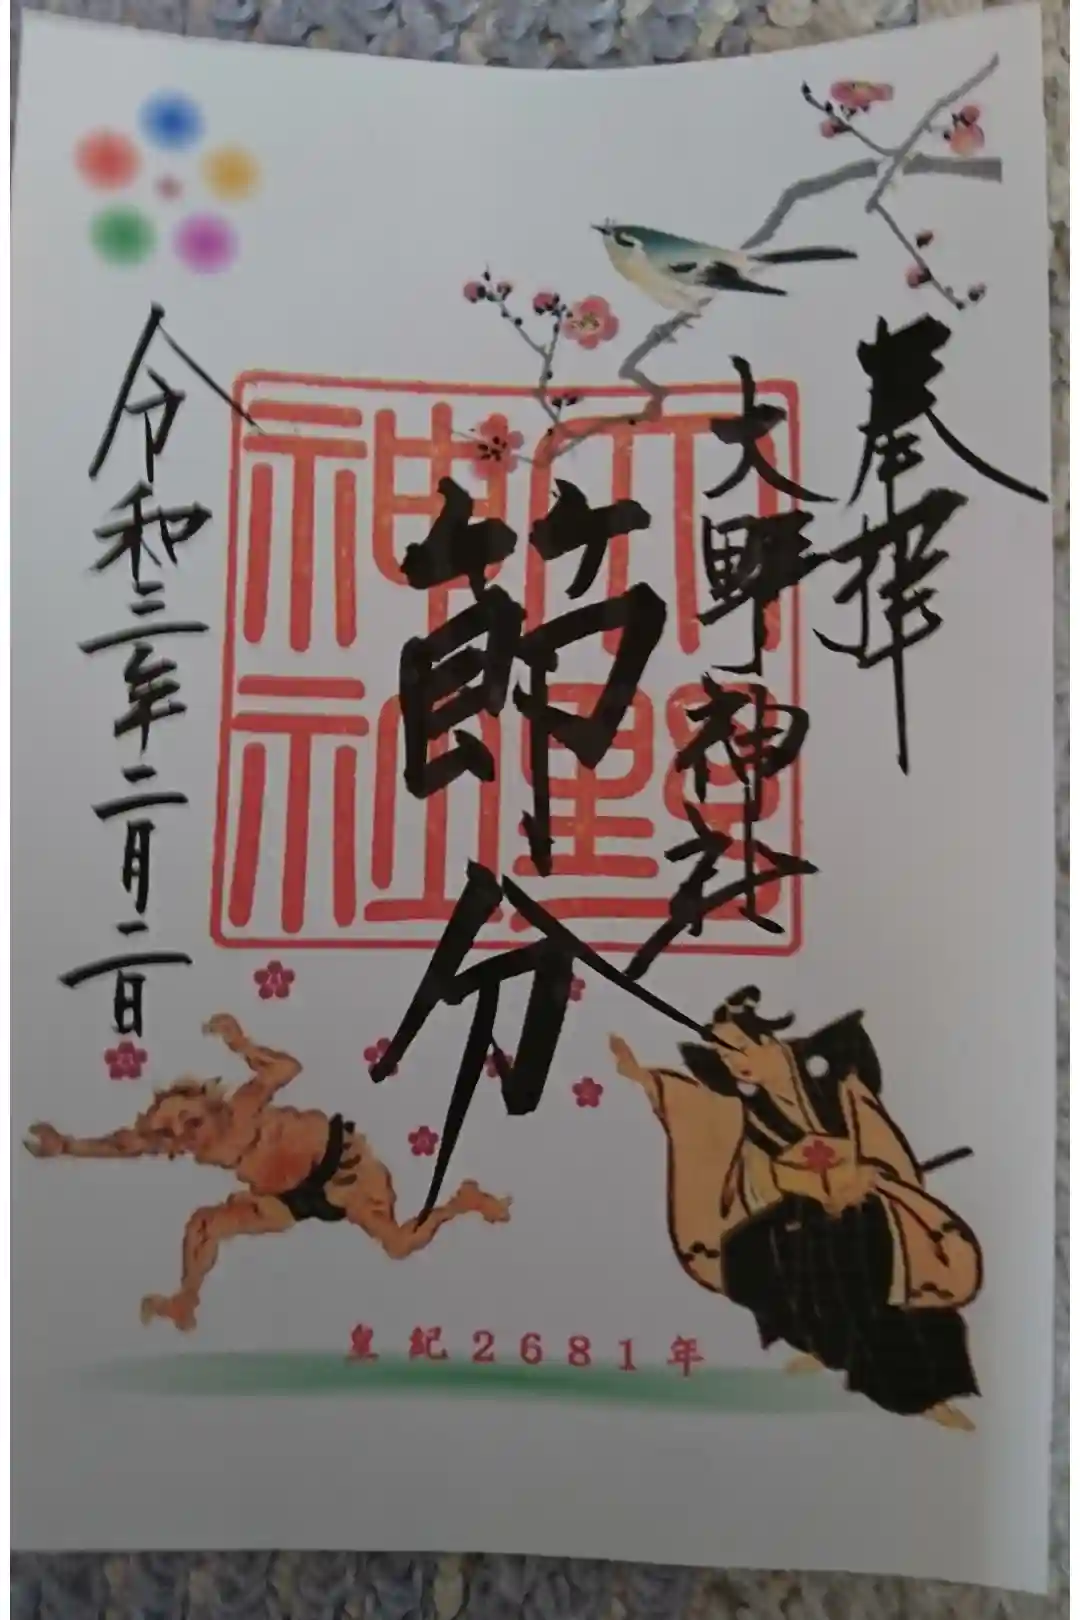 奉拝
大野神社
節分
大野
神社
令和三年二月二日
皇紀2681年